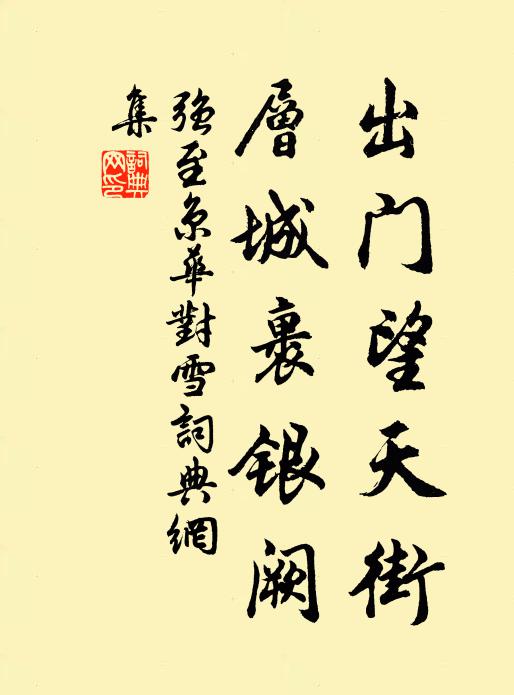 出门望天街
層城裹银阙
强至京華對雪詞典網
集
詞典
网印